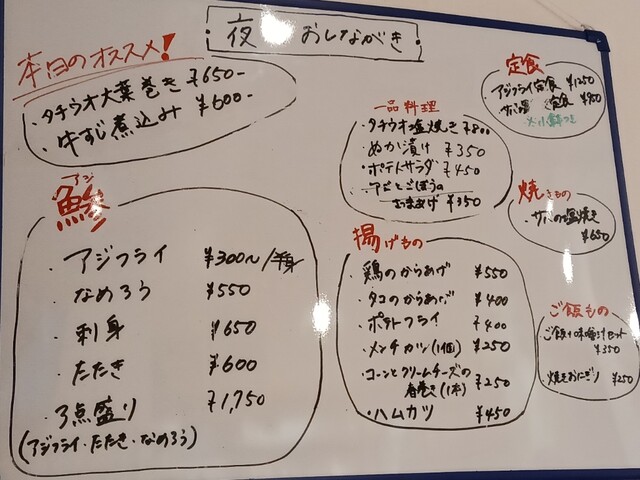 夜 おしながき
本日のオススメ!
・タチウオ大葉巻き ¥650-
・牛すじ煮込み ¥600-
アジ
鯵
・アジフライ ¥300~/半身
・なめろう ¥550
・刺身 ¥650
・たたき ¥600
・3点盛り ¥1,750
(アジフライ・たたき・なめろう)
一品料理
・タチウオ塩焼き ¥800
・ぬか漬け ¥350
・ポテトサラダ ¥450
ごぼうの
¥350
揚げもの
・鶏のからあげ ¥550
・タコのからあげ ¥400
・ポテトフライ ¥400
・メンチカツ(1個) ¥250
・コーンとクリームチーズの
春巻き(1本) ¥250
・ハムカツ ¥450
定食
・アジフライ定食 ¥1250
定食
焼きもの
・サバの塩焼き
¥650
ご飯もの
・ご飯+味噌汁セット
¥350
・焼きおにぎり ¥250